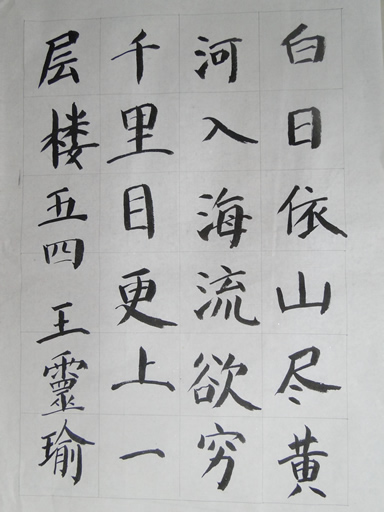 白日依山尽黄
河入海流欲穷
千里目更上一
层楼五四王靈瑜